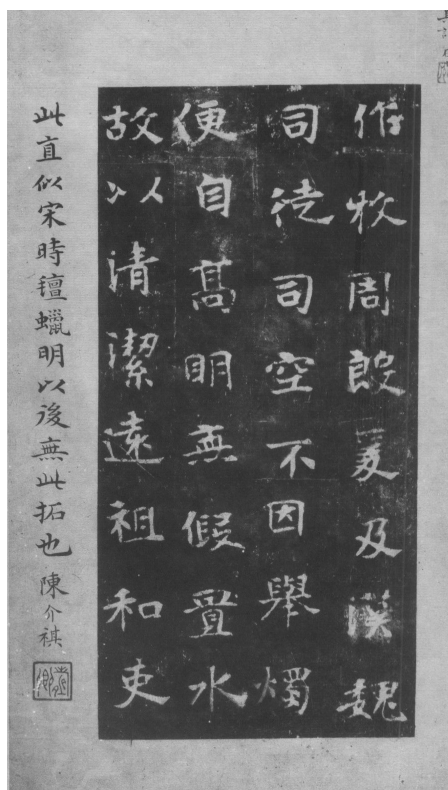 作牧周殷爰及漢魏
司徒司空不因舉燭
便自高明無假置水
故以清潔遠祖和吏
此直似宋時氊蠟明以後無此拓也 陳介祺